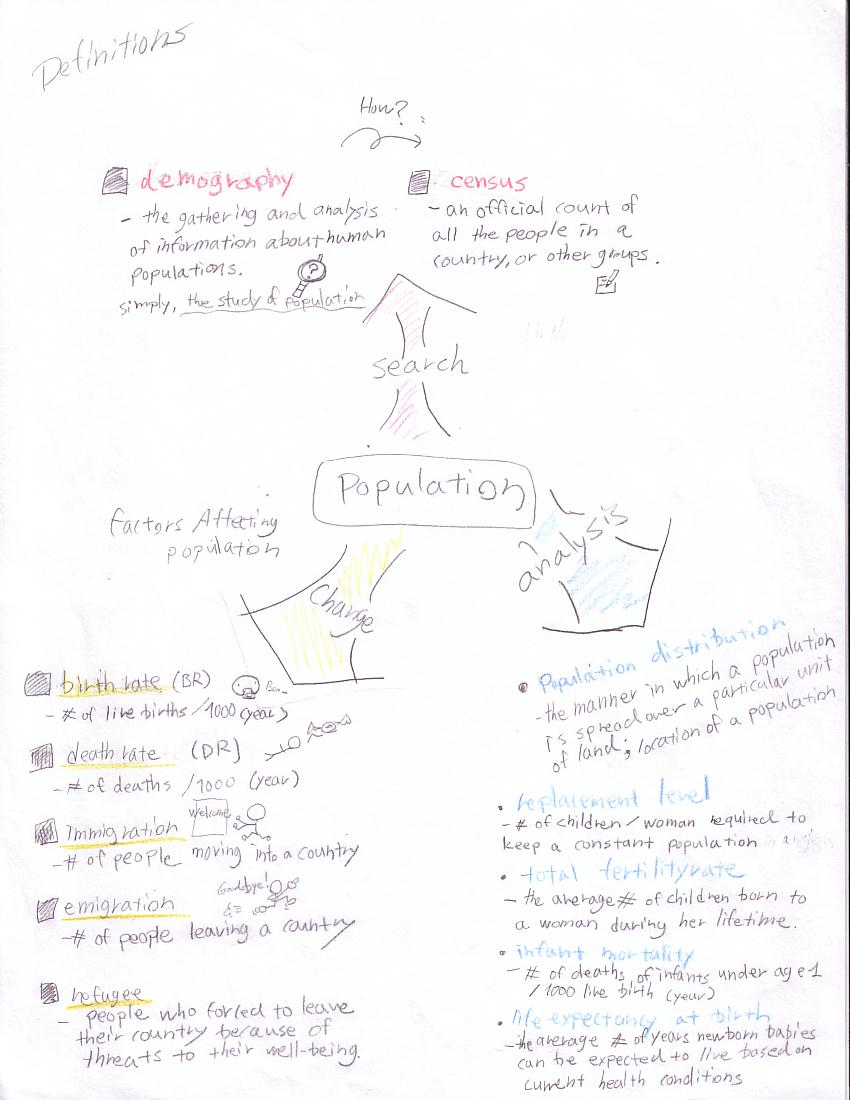 Definitions
How?
demography
- the gathering and analysis
of information about human
populations.
simply, the study of population
census
- an official count of
all the people in a
country, or other groups.
?
search
Population
Factors Affecting
population
Change
analysis
birth rate (BR)
- # of live births /1000 (year)
death rate (DR)
- # of deaths /1000 (year)
Welcome
immigration
- # of people moving into a country
Goodbye!
emigration
- # of people leaving a country
refugee
- people who forced to leave
their country because of
threats to their well-being.
Population distribution
- the manner in which a population
is spread over a particular unit
of land; location of a population
replacement level
- # of children/woman required to
keep a constant population
total fertility rate
- the average # of children born to
a woman during her lifetime.
infant mortality
- # of deaths of infants under age 1
/1000 live birth (year)
life expectancy at birth
- the average # of years newborn babies
can be expected to live based on
current health conditions